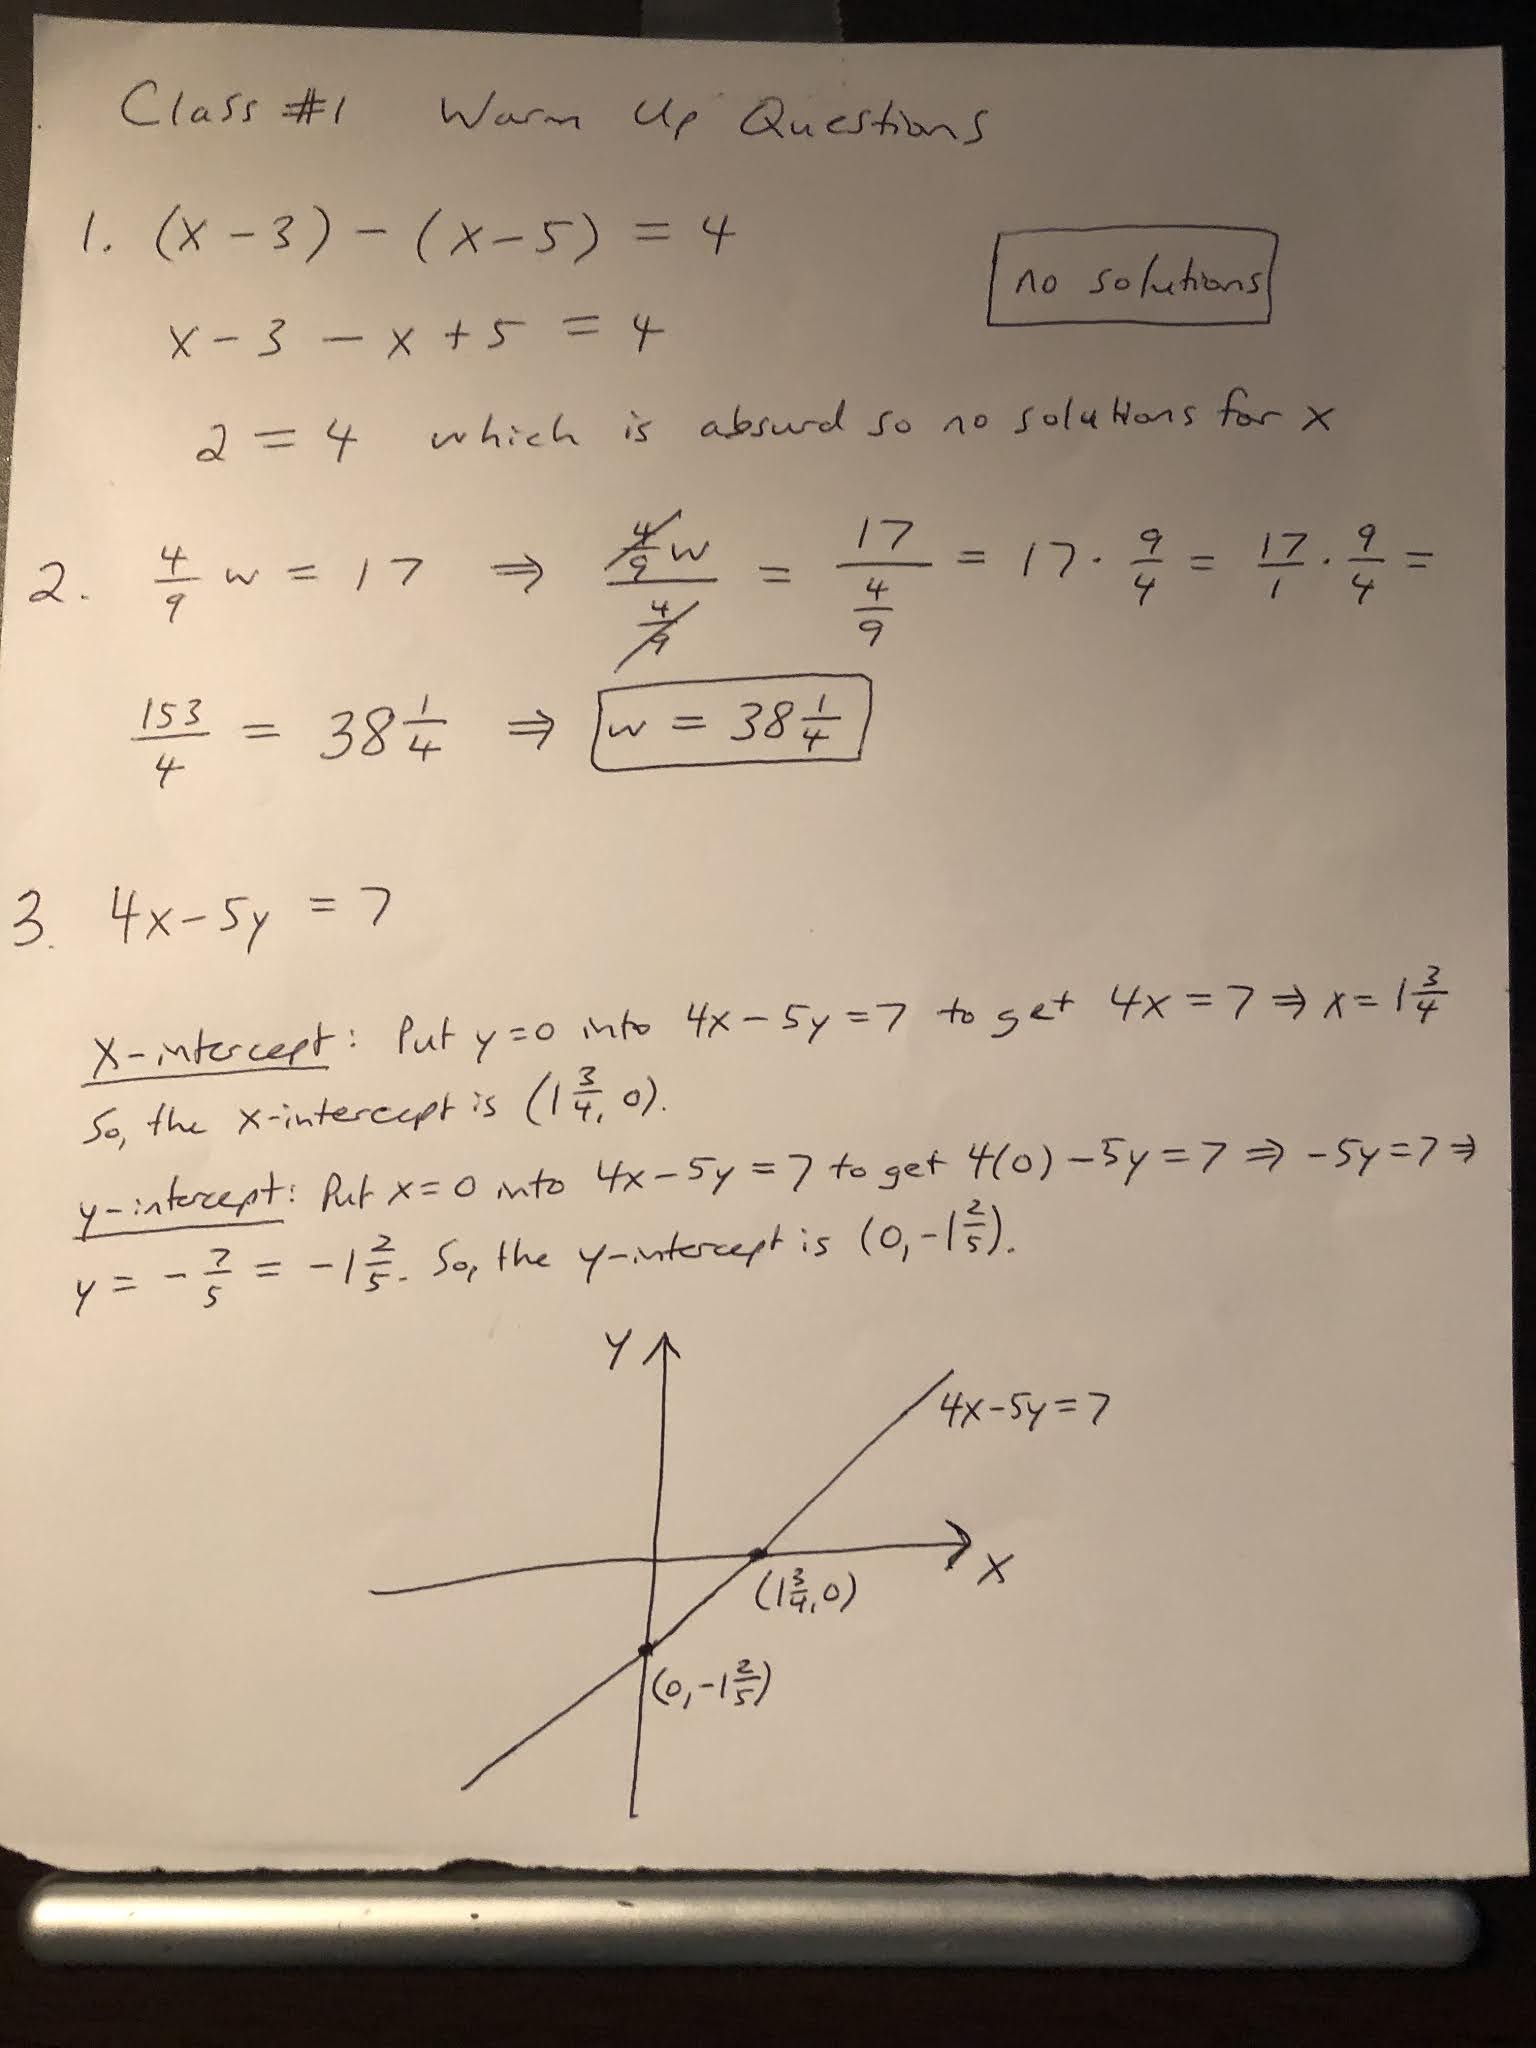 Class #1 Warm Up Questions
1. (x-3) - (x-5) = 4
no solutions
x-3 - x+5 = 4
2 = 4 which is absurd so no solutions for x
2. 4/9 w = 17 ⇒ (4/9 w)/(4/9) = 17/(4/9) = 17 · 9/4 = 17/1 · 9/4 =
153/4 = 38 1/4 ⇒ w = 38 1/4
3. 4x-5y = 7
X-intercept: Put y=0 into 4x-5y=7 to get 4x=7 ⇒ x=1 3/4
So, the x-intercept is (1 3/4, 0).
y-intercept: Put x=0 into 4x-5y=7 to get 4(0)-5y=7 ⇒ -5y=7 ⇒
y = -7/5 = -1 2/5. So, the y-intercept is (0, -1 2/5).
Y
4x-5y=7
X
(1 3/4, 0)
(0, -1 2/5)